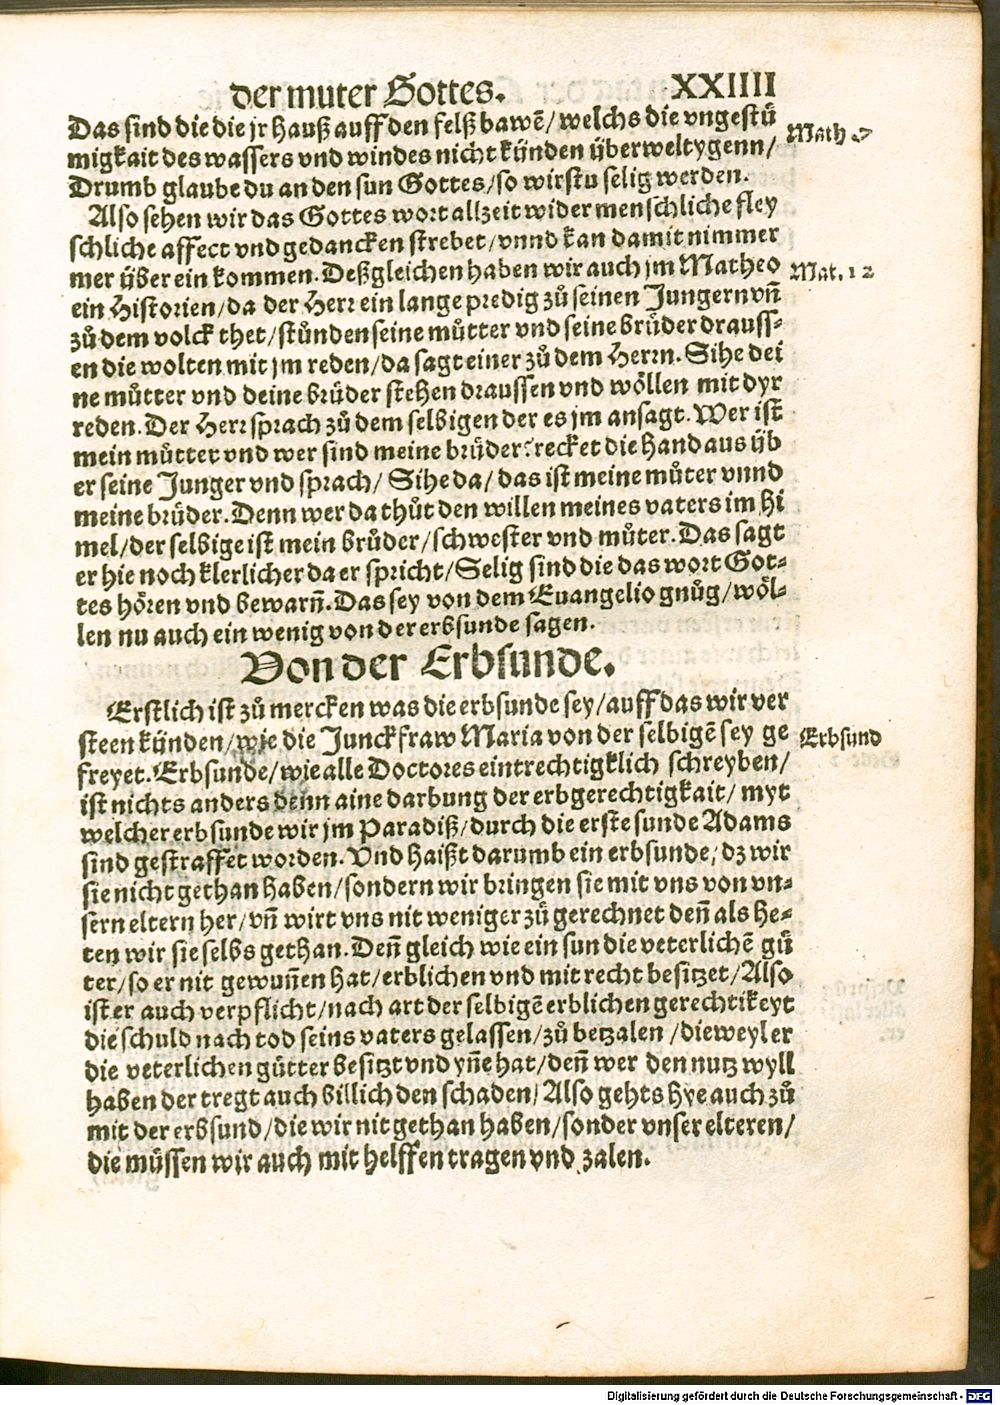 der muter Gottes. XXIIII
Das sind die die jr hauß auff den felß bawē/ welchs die vngestuͤ
migkait des wassers vnd windes nicht kuͤnden uͤberweltygenn/
Drumb glaube du an den sun Gottes/ so wirstu selig werden.
Math 7
Also sehen wir das Gottes wort allzeit wider menschliche fley
schliche affect vnd gedancken strebet/ vnnd kan damit nimmer
mer uͤber ein kommen. Deßgleichen haben wir auch jm Matheo
Mat. 12
ein Historien/ da der Herr ein lange predig zuͦ seinen Jungern vñ
zuͦ dem volck thet/ stuͤnden seine muͦtter vnd seine bruͤder drauss-
en die wolten mit jm reden/ da sagt einer zuͦ dem Herrn. Sihe dei
ne muͦtter vnd deine bruͤder stehen draussen vnd woͤllen mit dyr
reden. Der Herr sprach zuͦ dem selbigen der es jm ansagt. Wer ist
mein muͦtter vnd wer sind meine bruͤder? recket die hand aus uͤb
er seine Junger vnd sprach/ Sihe da/ das ist meine muͦter vnnd
meine bruͤder. Denn wer da thuͦt den willen meines vaters im hi
mel/ der selbige ist mein bruͦder/ schwester vnd muͦter. Das sagt
er hie noch klerlicher da er spricht/ Selig sind die das wort Got-
tes hoͤren vnd bewarñ. Das sey von dem Euangelio gnuͦg/ woͤl-
len nu auch ein wenig von der erbsunde sagen.
Von der Erbsunde.
Erstlich ist zuͦ mercken was die erbsunde sey/ auff das wir ver
steen kuͤnden/ wie die Junckfraw Maria von der selbigē sey ge
Erbsund
freyet. Erbsunde/ wie alle Doctores eintrechtigklich schreyben/
ist nichts anders denn aine darbung der erbgerechtigkait/ myt
welcher erbsunde wir jm Paradiß/ durch die erste sunde Adams
sind gestraffet worden. Vnd haißt darumb ein erbsunde/ dz wir
sie nicht gethan haben/ sondern wir bringen sie mit vns von vn-
sern eltern her/ vñ wirt vns nit weniger zuͦ gerechnet deñ als he-
ten wir sie selbs gethan. Deñ gleich wie ein sun die veterlichē guͤ
ter/ so er nit gewuñen hat/ erblichen vnd mit recht besitzet/ Also
ist er auch verpflicht/ nach art der selbigē erblichen gerechtikeyt
die schuld nach tod seins vaters gelassen/ zuͦ betzalen/ dieweyl er
die veterlichen guͤtter besitzt vnd yñe hat/ deñ wer den nutz wyll
haben der tregt auch billich den schaden/ Also gehts hye auch zuͦ
mit der erbsund/ die wir nit gethan haben/ sonder vnser elteren/
die muͤssen wir auch mit helffen tragen vnd zalen.
Digitalisierung gefördert durch die Deutsche Forschungsgemeinschaft - DFG